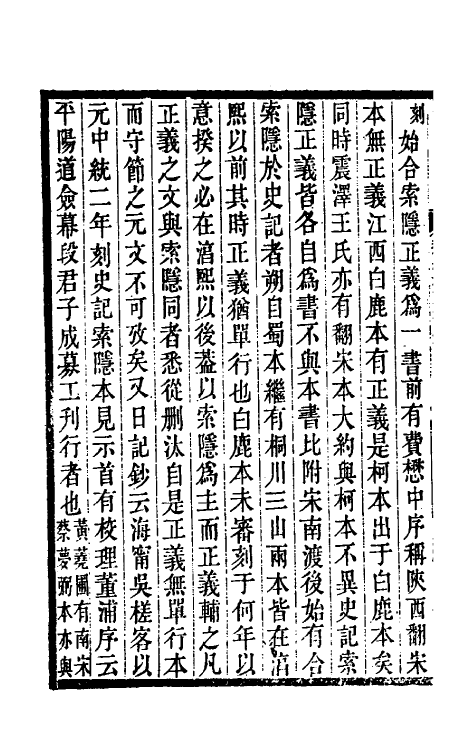 刻始合索隱正義爲一書前有費懋中序稱陝西翻宋
本無正義江西白鹿本有正義是柯本出于白鹿本矣
同時震澤王氏亦有翻宋本大約與柯本不異史記索
隱正義皆各自爲書不與本書比附宋南渡後始有合
索隱於史記者朔自蜀本繼有桐川三山兩本皆在淳
熙以前其時正義猶單行也白鹿本未審刻于何年以
意揆之必在淳熙以後葢以索隱爲主而正義輔之凡
正義之文與索隱同者悉從刪汰自是正義無單行本
而守節之元文不可攷矣又日記鈔云海甯吳槎客以
元中統二年刻史記索隱本見示首有校理董浦序云
平陽道僉幕段君子成募工刊行者也黃蕘圃有南宋
蔡夢弼本亦與